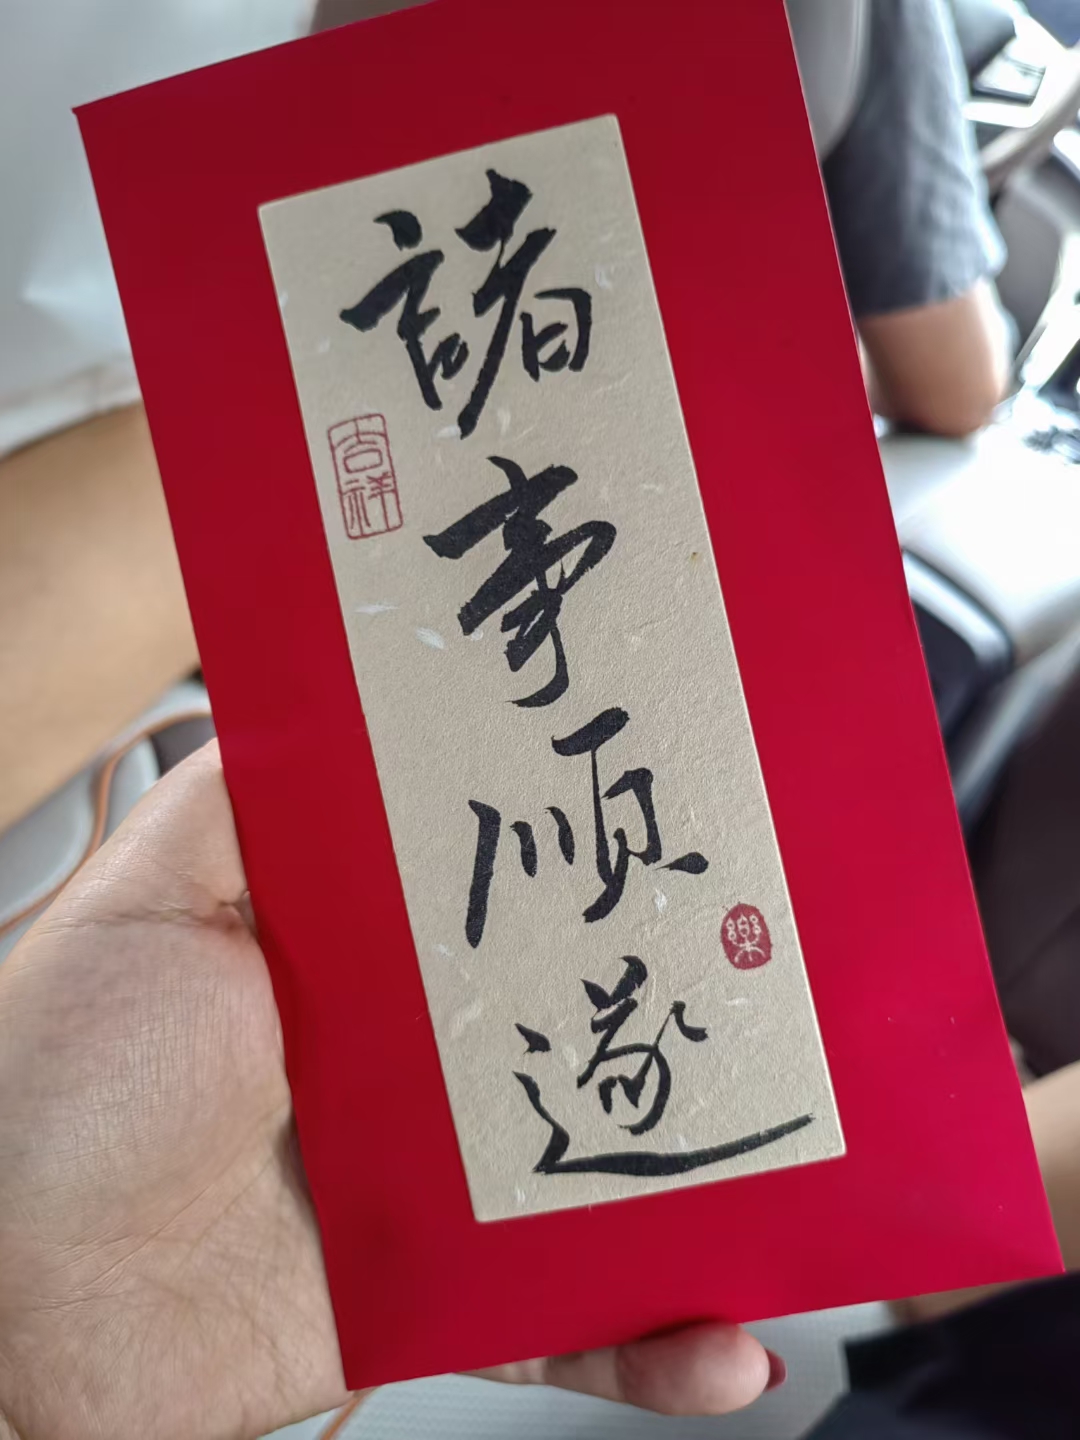 諸事順遂
吉祥
樂